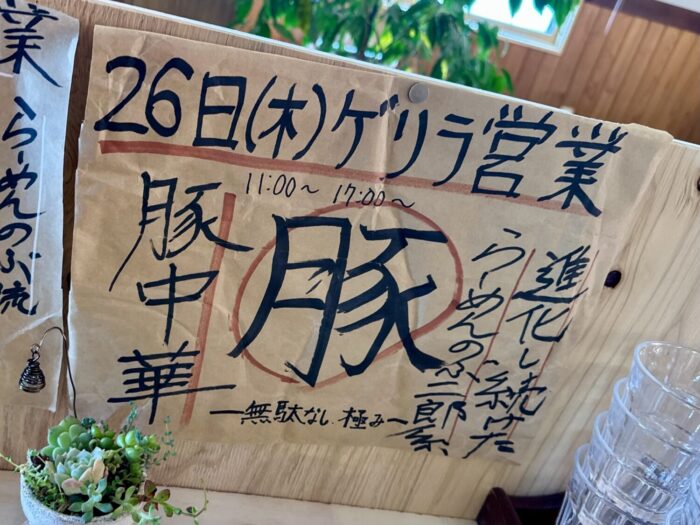 26日(木)ゲリラ営業
11:00〜 17:00〜
進化し続けた
らーめんのぶ二郎系
豚
豚中華
ー無駄なし極みー
業
らーめんのぶ流